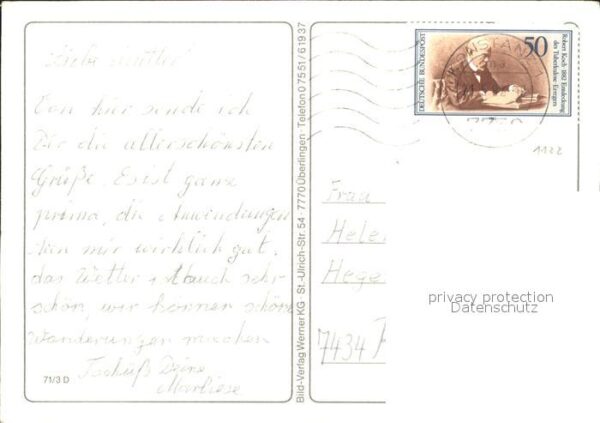 Liebe Mutter!
Von hier sende ich
Dir die allerschönsten
Grüße. Es ist ganz
prima, die Anwendungen
tun mir wirklich gut.
das Wetter ist auch sehr
schön, wir können schöne
Wanderungen machen
Tschüß Deine
Marliese
71/3 D
Bild-Verlag Werner KG St.-Ulrich-Str. 54 · 7770 Überlingen Telefon 0 75 51/6 19 37
DEUTSCHE BUNDESPOST
50
Robert Koch 1882 Entdeckung
des Tuberkulose-Erregers
KONSTANZ
1122
Frau
Hele
Hege
7434
privacy protection
Datenschutz